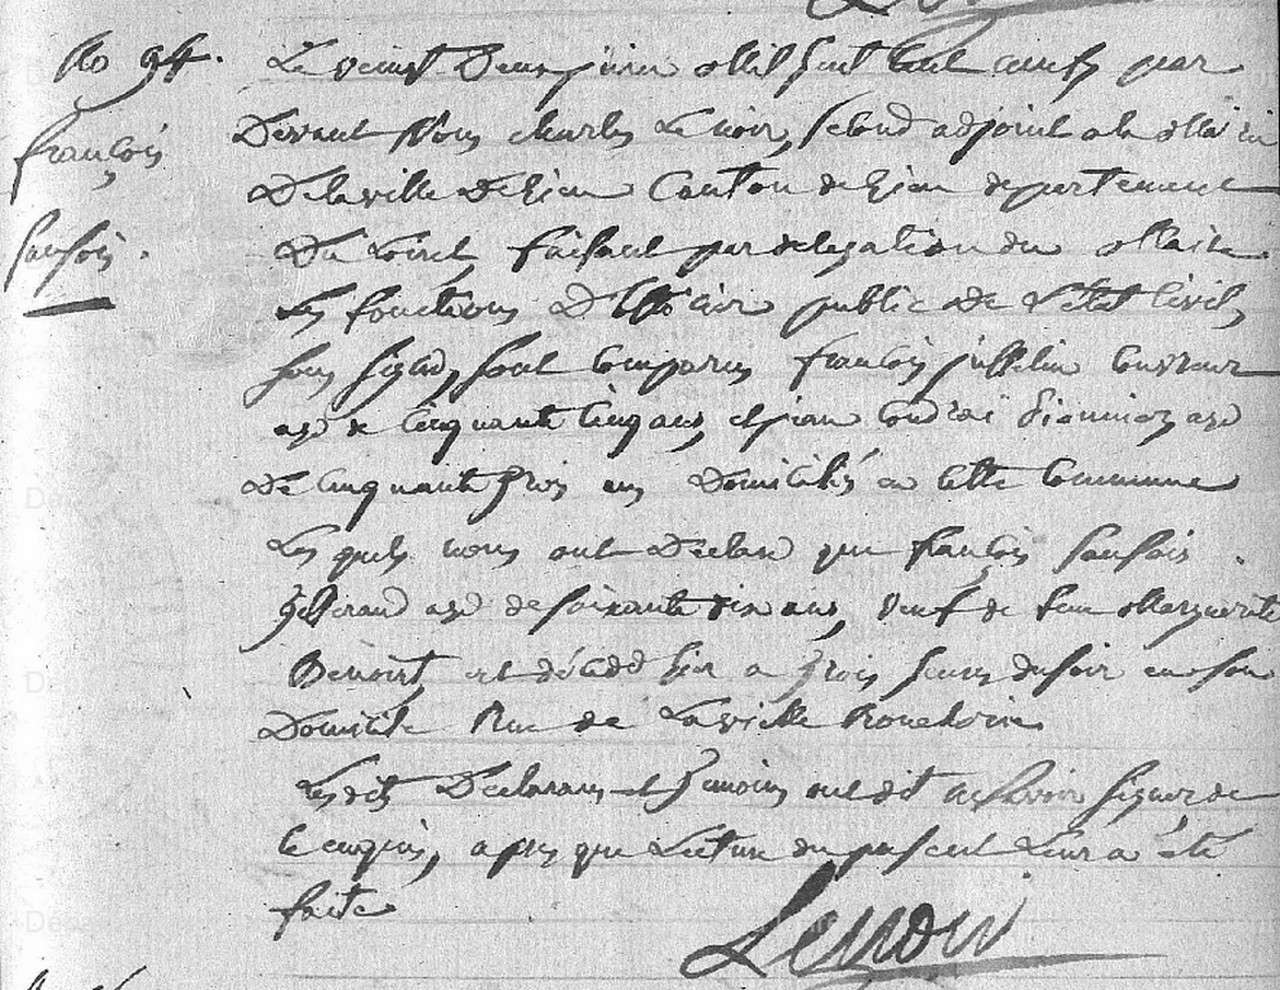 No 94.
françois
sansois.
Le vingt Deux juin Mil huit Cent neuf, par
Devant Nous charles Le noir, second adjoint a la Mairie
De la ville De Gien Canton de Gien departement
Du Loiret, faisant par delegation du Maire
Les fonctions D'officier public de L'etat Civil,
sous signé, sont Comparus françois jusselin Couvreur
agé de Cinquante Cinq ans, et jean Coudrai
agé
De Cinquante trois ans Domiciliés en Cette Commune
Les quels nous ont Declaré que françois sansois
Tisserand agé de soixante dix ans, veuf de feue Marguerite
Benoist, est décédé hier a trois heures du soir en son
Domicile Rue de La vielle Boucherie
Les dits Declarans et Temoins ont dit ne savoir signer de
Ce enquis, apres que Lecture du present Leur a été
faite
Lenoir